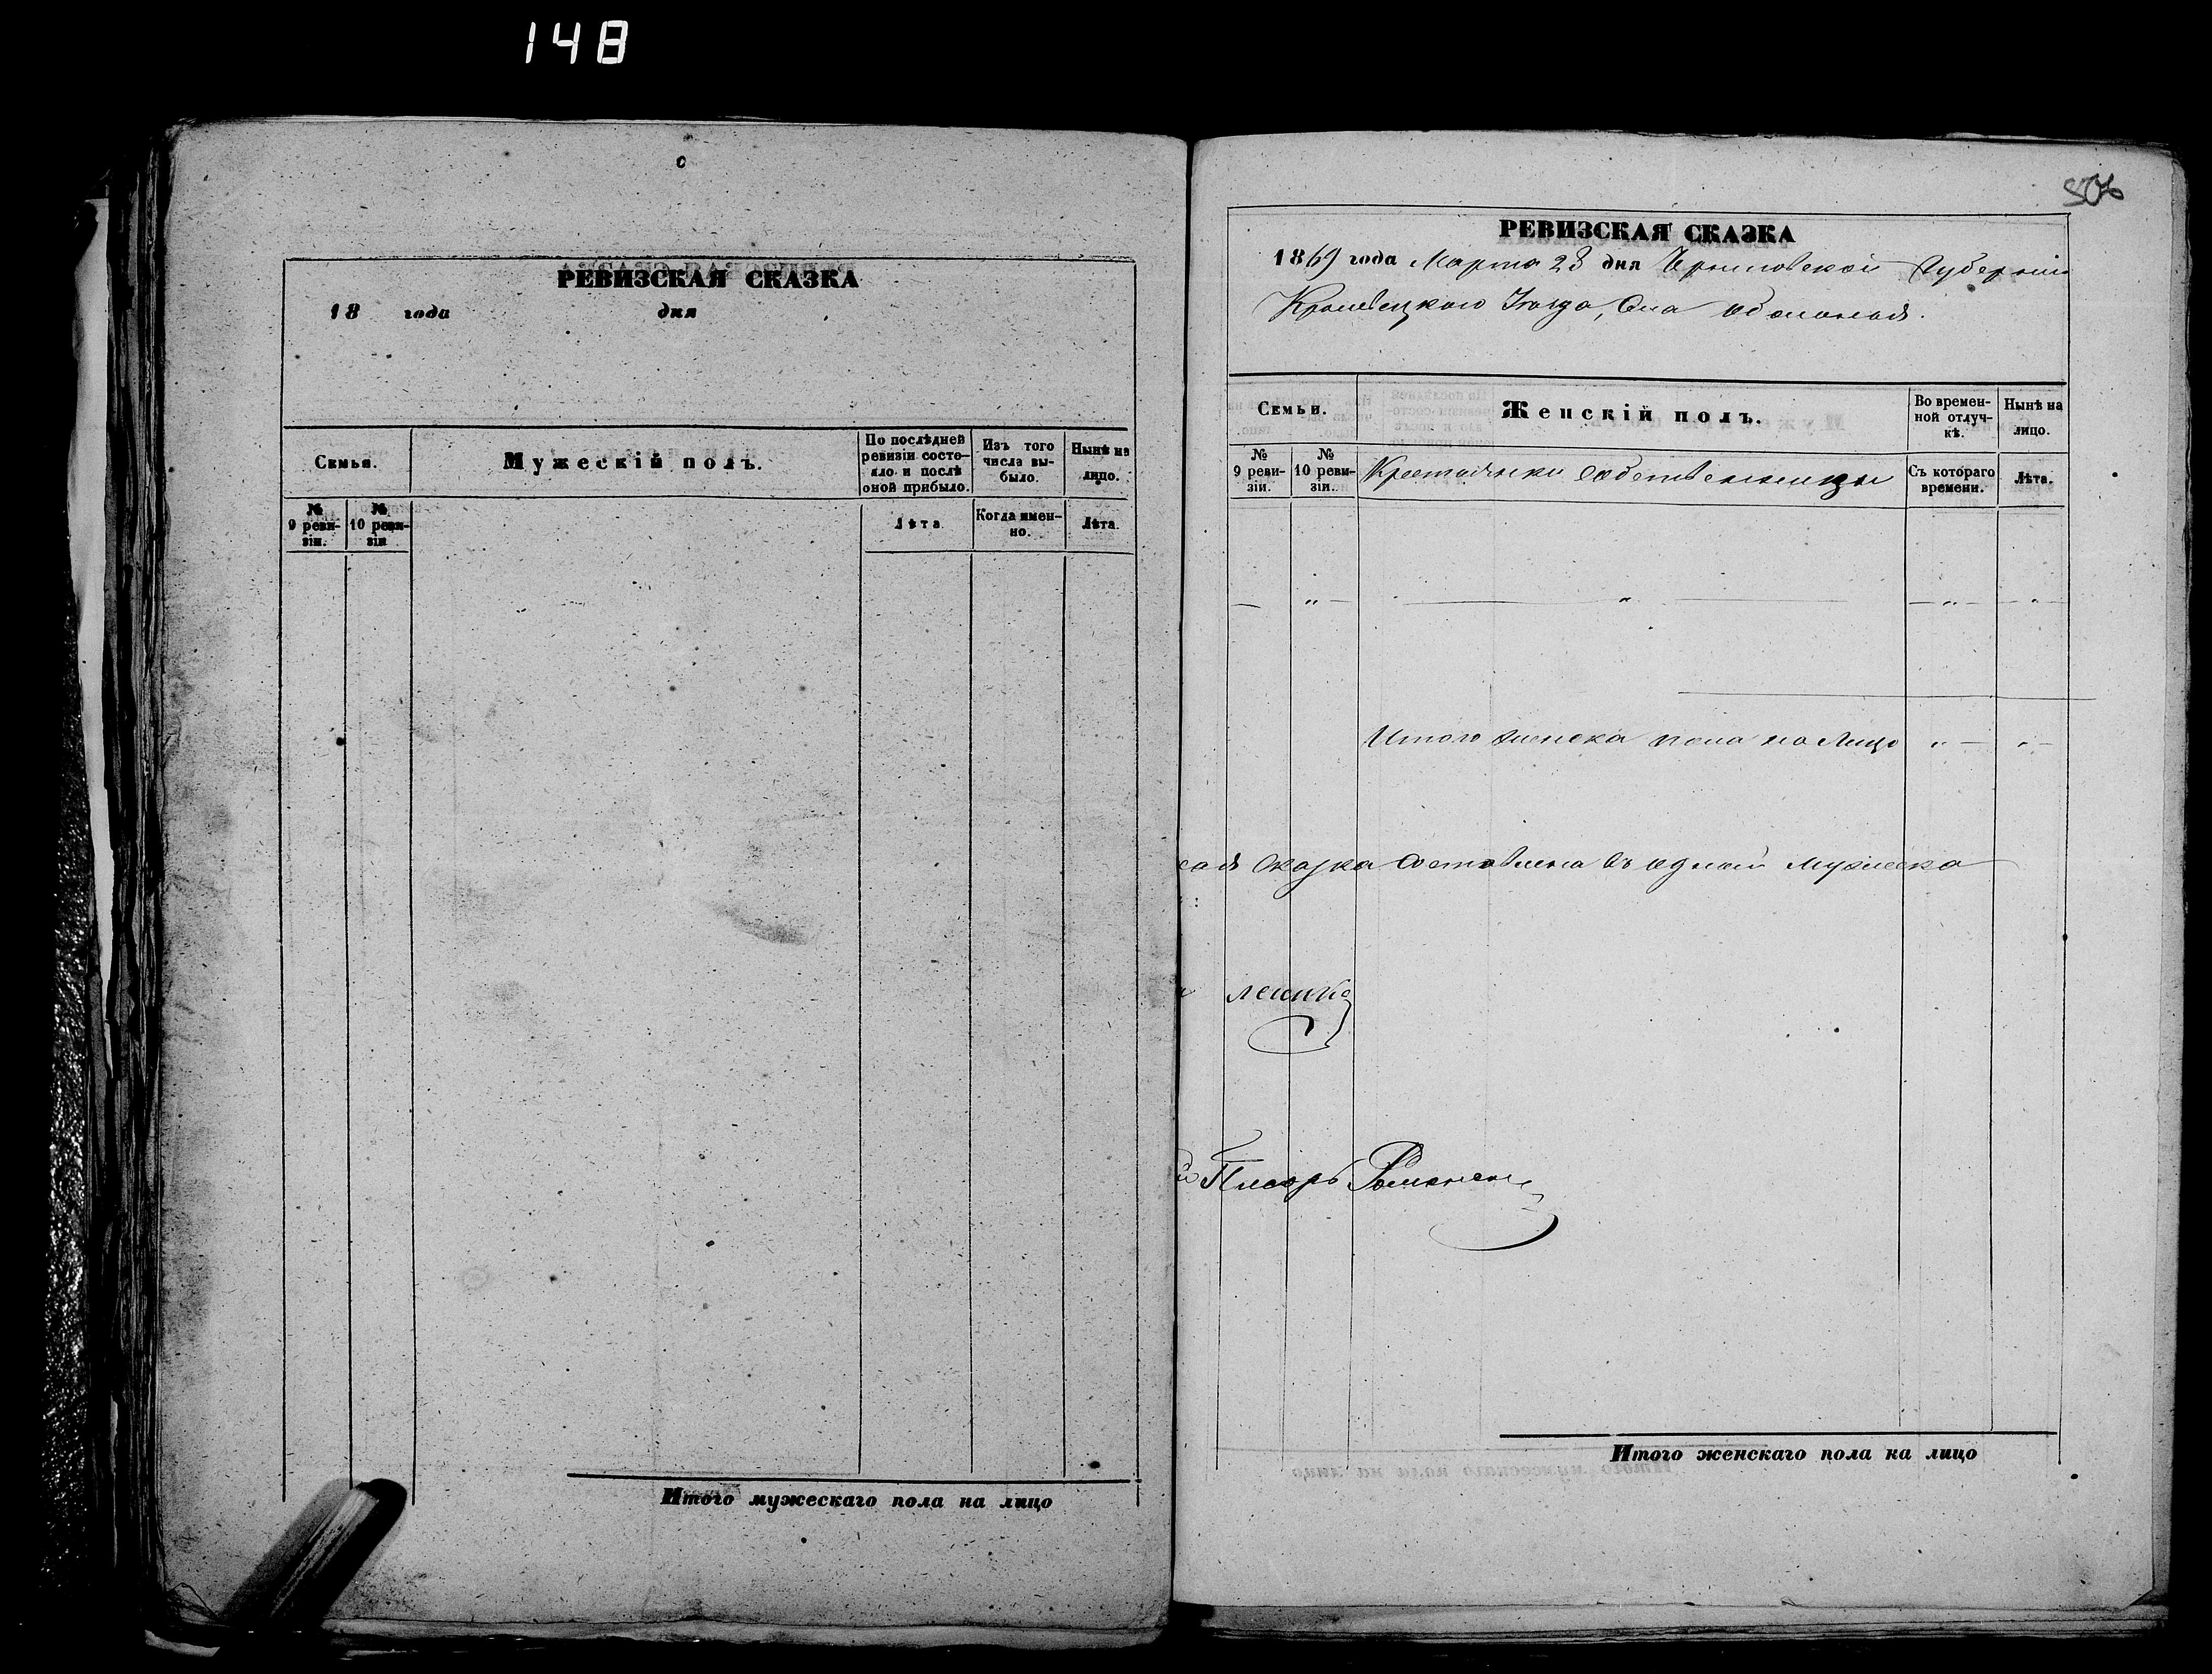 148
РЕВИЗСКАЯ СКАЗКА
18 года дня
Семьи.
Мужескій полъ.
По послѣдней ревизіи состояло и послѣ оной прибыло.
Изъ того числа выбыло.
Нынѣ на лицо.
№ 9 ревизіи.
№ 10 ревизіи
Лѣта.
Когда именно.
Лѣта.
Итого мужескаго пола на лицо
506
РЕВИЗСКАЯ СКАЗКА
1869 года Марта 28 дня Черниговской Губерніи
Кролевецкаго Уѣзда, Села Оболонья.
Семьи.
Женскій полъ.
Во временной отлучкѣ.
Нынѣ на лицо.
№ 9 ревизіи.
№ 10 ревизіи.
Крестьянки собственницы
Съ котораго времени.
Лѣта.
Итого женска пола на лицо
сказка составлена въ одной мужеска
Писарь Романен
Итого женскаго пола на лицо